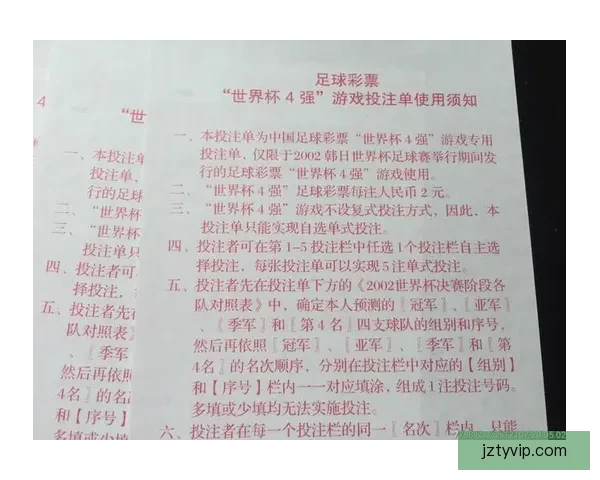 足球彩票
“世界杯 4 强”游戏投注单使用须知
一、本投注单为中国足球彩票“世界杯 4 强”游戏专用
投注单，仅限于2002 韩日世界杯足球赛举行期间发
行的足球彩票“世界杯 4 强”游戏使用。
二、“世界杯 4 强”足球彩票每注人民币 2 元。
三、“世界杯 4 强”游戏不设复式投注方式，因此，本
投注单只能实现自选单式投注。
四、投注者可在第 1–5 投注栏中任选 1个投注栏自主选
择投注，每张投注单可以实现 5 注单式投注。
五、投注者先在投注单下方的《2002世界杯决赛阶段各
队对照表》中，确定本人预测的〖冠军〗、〖亚军〗
、〖季军〗和〖第 4 名〗四支球队的组别和序号，
然后再依照〖冠军〗、〖亚军〗、〖季军〗和〖第
4名〗的名次顺序，分别在投注栏中对应的【组别】
和【序号】栏内一一对应填涂，组成 1 注投注号码。
多填或少填均无法实施投注。
六、投注者在每一个投注栏的同一〖名次〗栏内，只能
4
“世
一、本投注单
投注单，
行的足球
二、“世界杯
三、“世界杯
投注单只
四、投注者可
择投注，每
五、投注者先在
队对照表》
、〖季军
然后再依照
4名〗的名
和【序号】
多填或少填
jztyvip.com